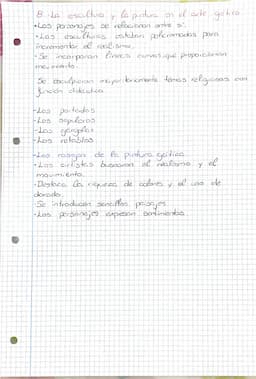 8. La escultura y la pintura en el arte gótico
-Los personajes se relacionan entre sí.
-Las esculturas estaban policromadas para
incrementar el realismo.
-Se incorporan líneas curvas que proporcionan
movimiento.
Se esculpieron mayoritariamente temas religiosos con
función didáctica
-Las portadas
-Los sepulcros
-Las gárgolas
-Los retablos
-Los rasgos de la pintura gótica.
-Los artistas buscaron el realismo y el
movimiento.
-Destaca la riqueza de colores y el uso de
dorado.
-Se introducen sencillos paisajes
-Los personajes expresan sentimientos.